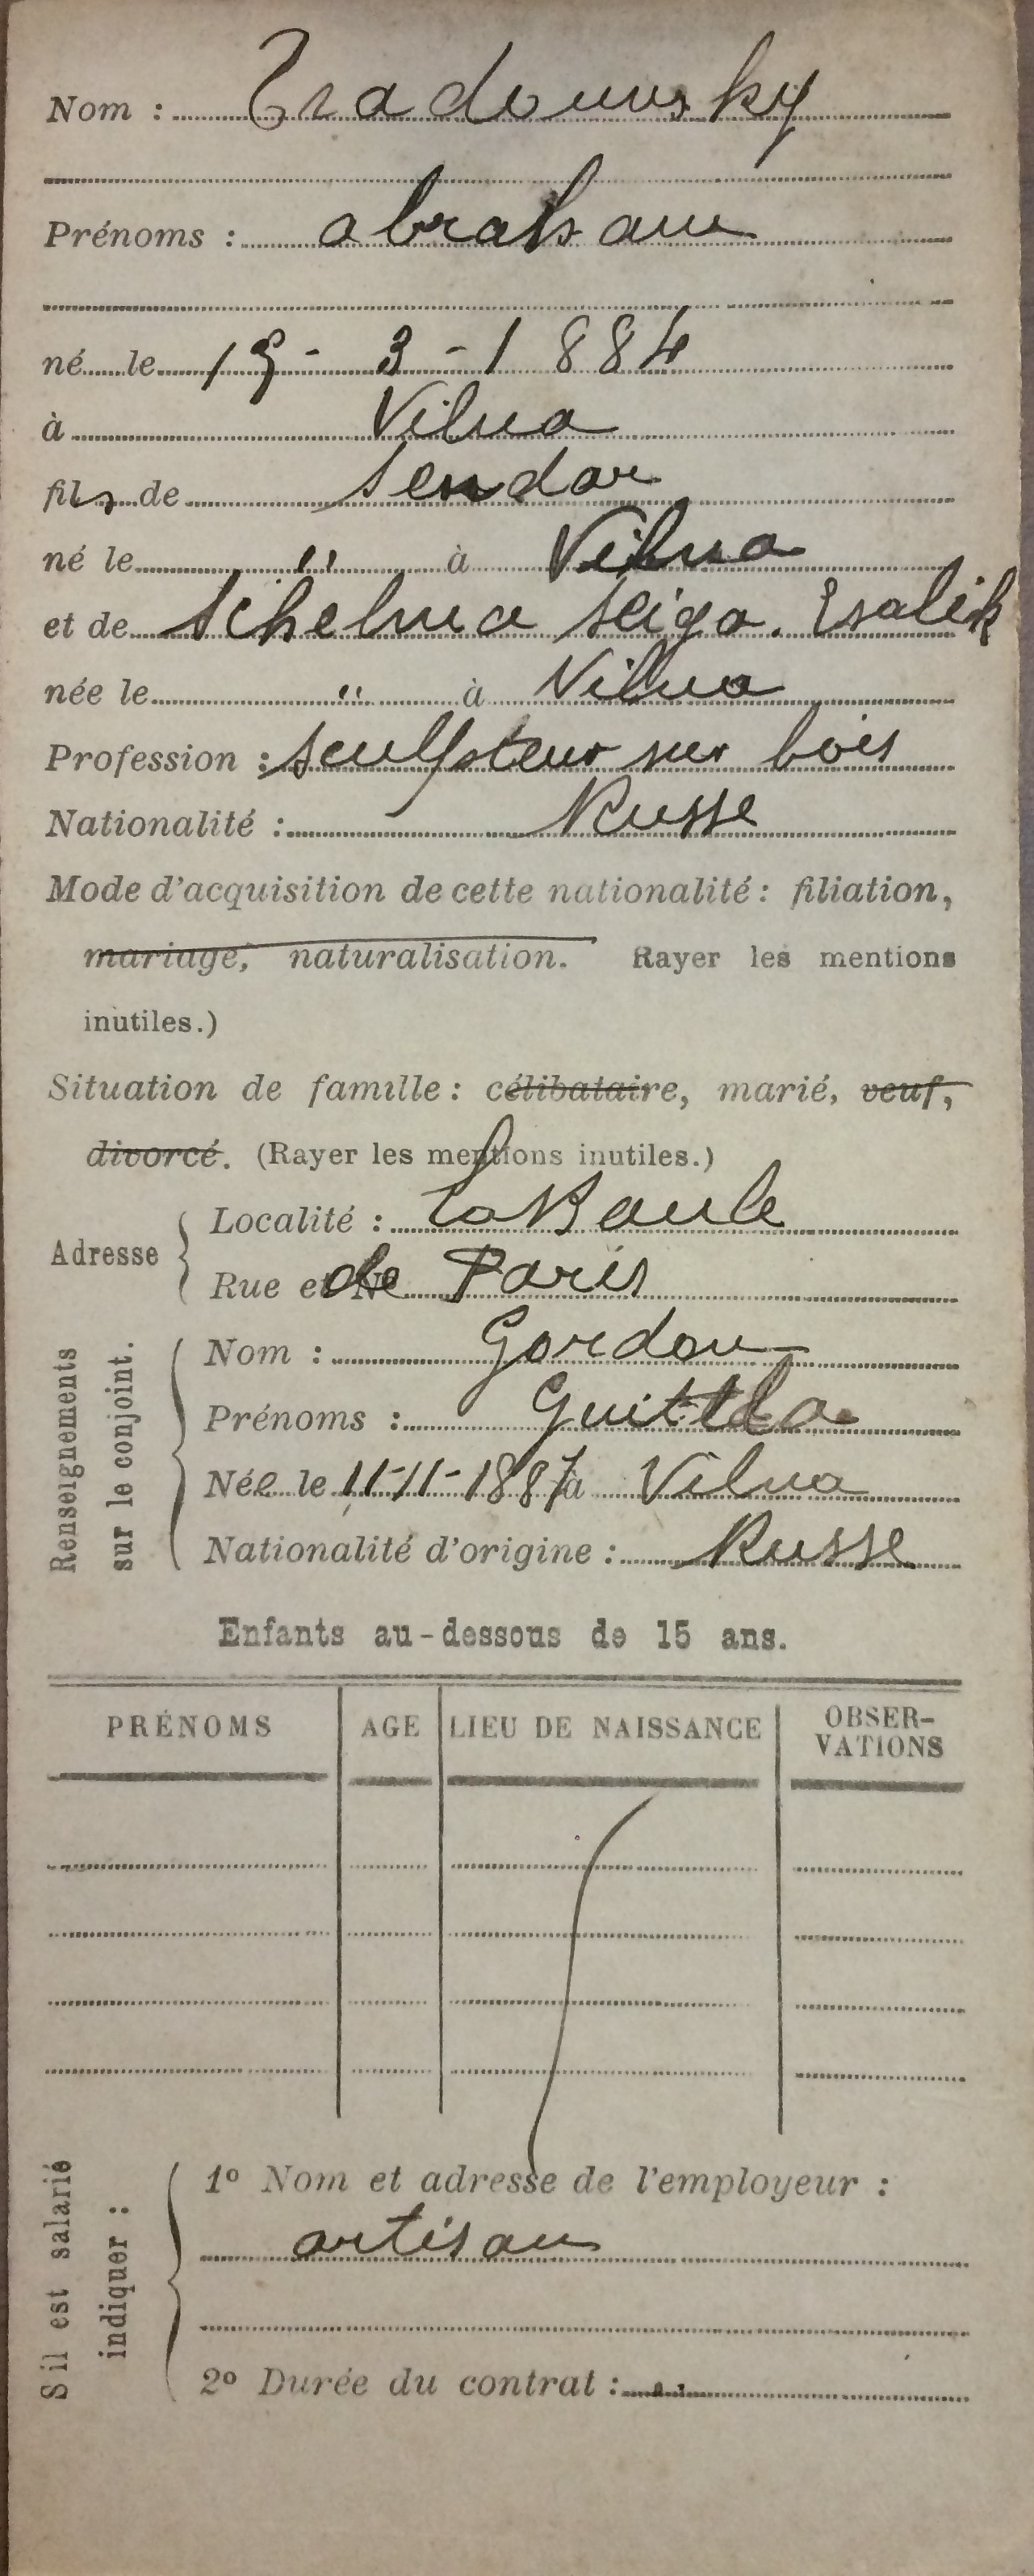 Nom : Tradounsky
Prénoms : abraham
né le 19 - 3 - 1884
à Vilna
fils de Sendar
né le " à Vilna
et de Schelma Seiga. Esalik
née le " à Vilna
Profession : sculpteur sur bois
Nationalité : Russe
Mode d'acquisition de cette nationalité : filiation,
mariage, naturalisation. Rayer les mentions
inutiles.)
Situation de famille : célibataire, marié, veuf,
divorcé. (Rayer les mentions inutiles.)
Adresse
Localité : La Baule
Rue et N° de Paris
Renseignements
sur le conjoint.
Nom : Gordon
Prénoms : Guitela
Née le 11-11-1887 à Vilna
Nationalité d'origine : Russe
Enfants au-dessous de 15 ans.
PRÉNOMS AGE LIEU DE NAISSANCE OBSER-
VATIONS
S'il est salarié
indiquer :
1° Nom et adresse de l'employeur :
artisan
2° Durée du contrat : "